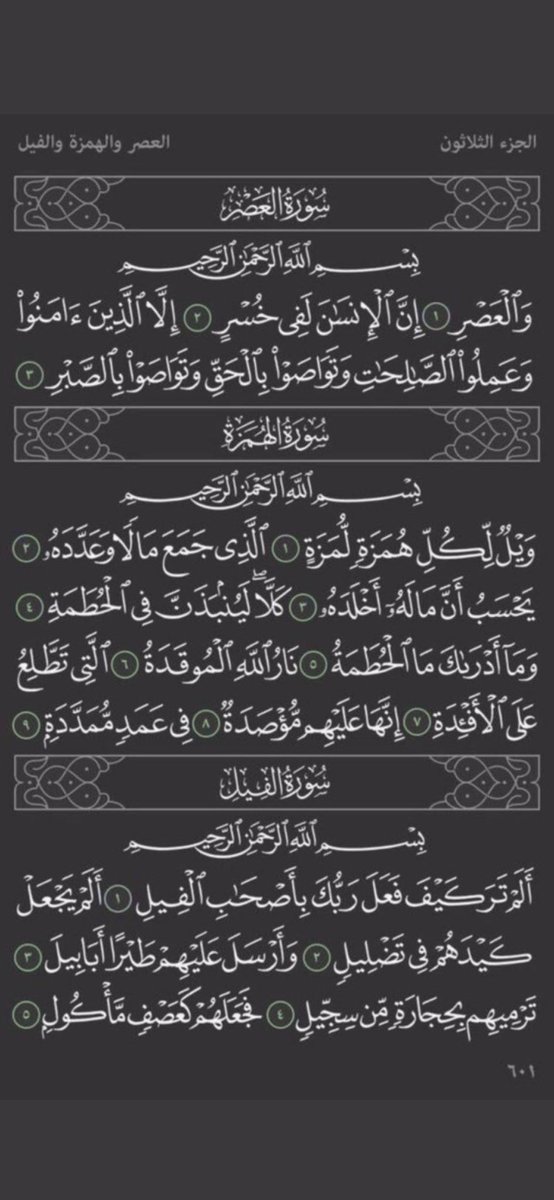 الجزء الثلاثون
العصر والهمزة والفيل
سُورَةُ العَصْرِ
بِسْمِ ٱللَّهِ ٱلرَّحْمَٰنِ ٱلرَّحِيمِ
وَٱلْعَصْرِ ١ إِنَّ ٱلْإِنسَٰنَ لَفِى خُسْرٍ ٢ إِلَّا ٱلَّذِينَ ءَامَنُوا۟
وَعَمِلُوا۟ ٱلصَّٰلِحَٰتِ وَتَوَاصَوْا۟ بِٱلْحَقِّ وَتَوَاصَوْا۟ بِٱلصَّبْرِ ٣
سُورَةُ الهُمَزَةِ
بِسْمِ ٱللَّهِ ٱلرَّحْمَٰنِ ٱلرَّحِيمِ
وَيْلٌ لِّكُلِّ هُمَزَةٍ لُّمَزَةٍ ١ ٱلَّذِى جَمَعَ مَالًا وَعَدَّدَهُۥ ٢
يَحْسَبُ أَنَّ مَالَهُۥٓ أَخْلَدَهُۥ ٣ كَلَّا ۖ لَيُنۢبَذَنَّ فِى ٱلْحُطَمَةِ ٤
وَمَآ أَدْرَىٰكَ مَا ٱلْحُطَمَةُ ٥ نَارُ ٱللَّهِ ٱلْمُوقَدَةُ ٦ ٱلَّتِى تَطَّلِعُ
عَلَى ٱلْأَفْـِٔدَةِ ٧ إِنَّهَا عَلَيْهِم مُّؤْصَدَةٌ ٨ فِى عَمَدٍ مُّمَدَّدَةٍۭ ٩
سُورَةُ الفِيلِ
بِسْمِ ٱللَّهِ ٱلرَّحْمَٰنِ ٱلرَّحِيمِ
أَلَمْ تَرَ كَيْفَ فَعَلَ رَبُّكَ بِأَصْحَٰبِ ٱلْفِيلِ ١ أَلَمْ يَجْعَلْ
كَيْدَهُمْ فِى تَضْلِيلٍ ٢ وَأَرْسَلَ عَلَيْهِمْ طَيْرًا أَبَابِيلَ ٣
تَرْمِيهِم بِحِجَارَةٍ مِّن سِجِّيلٍ ٤ فَجَعَلَهُمْ كَعَصْفٍ مَّأْكُولٍۭ ٥
٦٠١